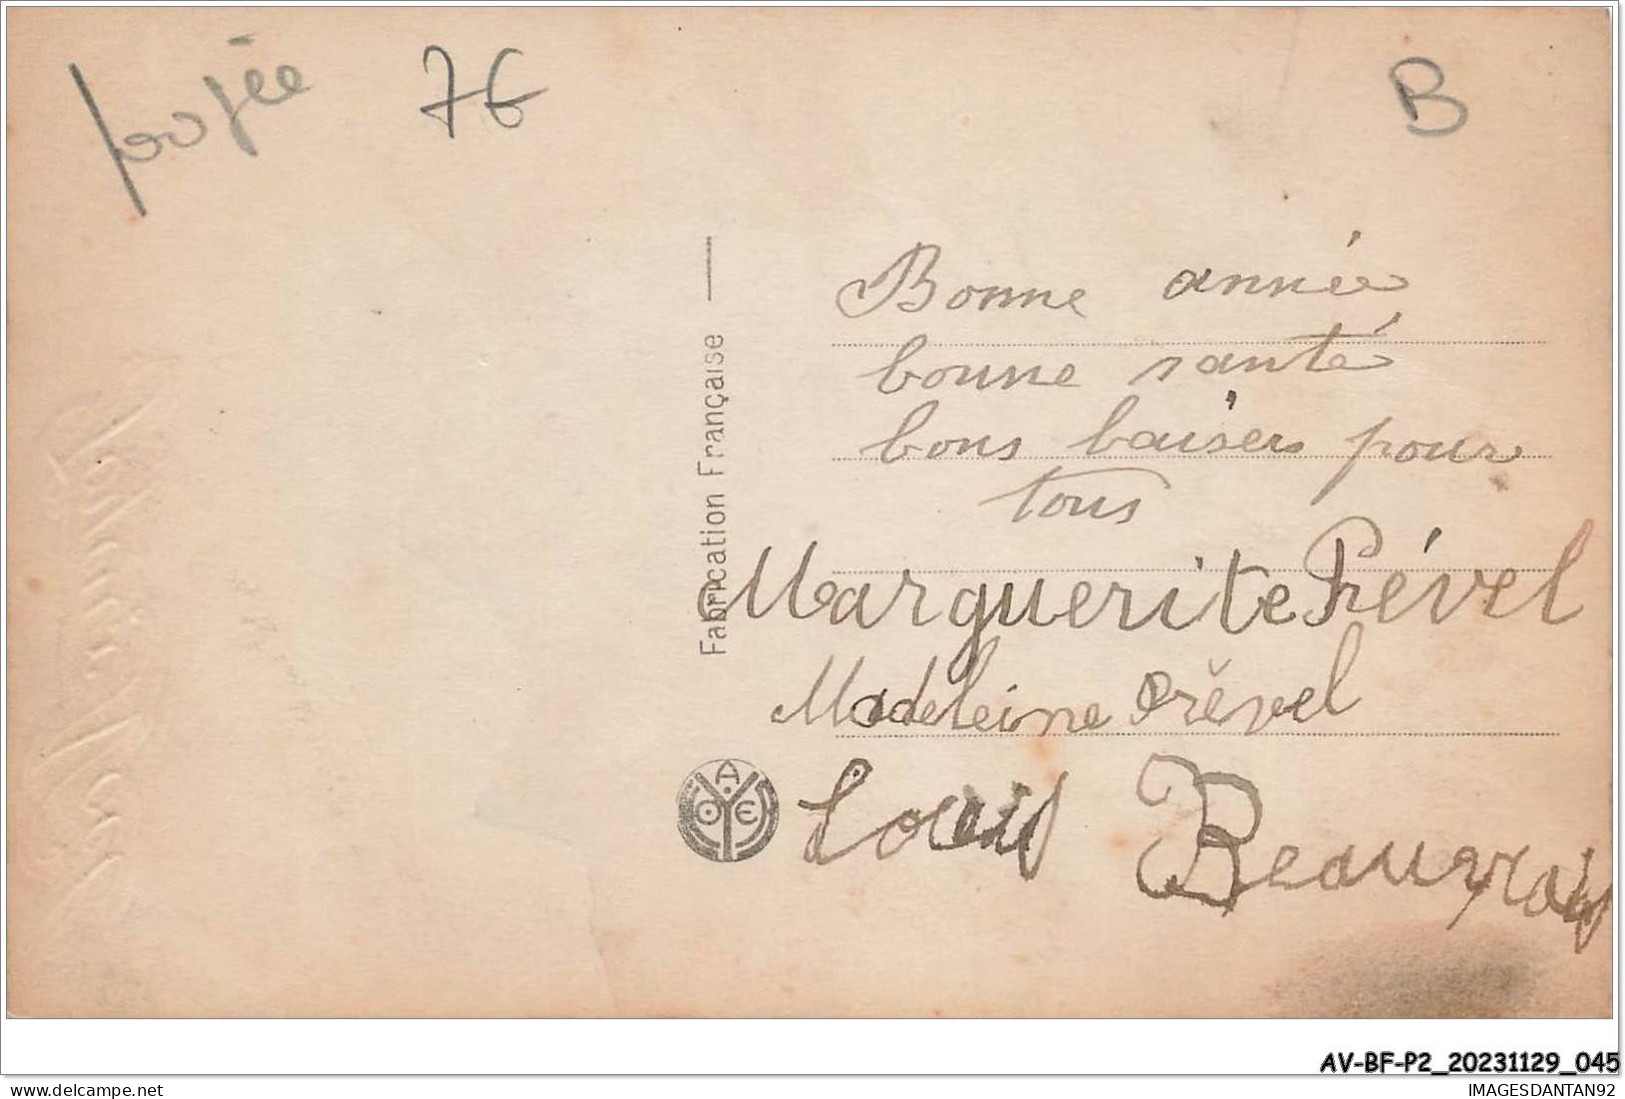 poupée 76 B
Bonne année
bonne santé
bons baisers pour
tous
Marguerite Prével
Madeleine Prével
Louis Beauvrais
Fabrication Française
A
O E
AV-BF-P2_20231129_045
delcampe.net
IMAGESDANTAN92